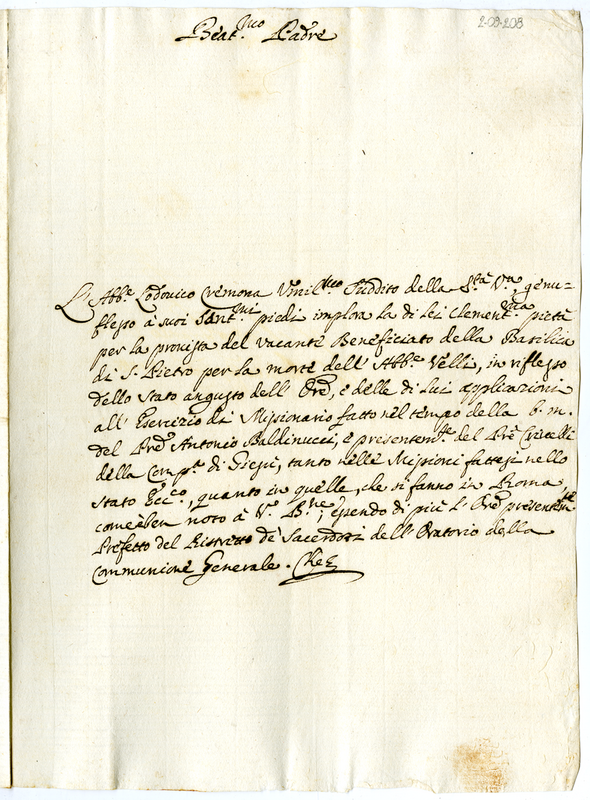 2-09-208
Beat.mo Padre
L'Abb.e Lodovico Cremona Umil.mo Suddito della S.tà V.a, genu-
flesso à suoi Sant.mi piedi implora la di Lei Clement.ma pietà
per la provista del vacante Beneficiato della Basilica
di S. Pietro per la morte dell'Abb.e Velli, in riflesso
dello Stato angusto dell'Ore, e delle di Lui applicazioni
all'Esercizio di Missionario fatto nel tempo della b. m.
del Pre Antonio Baldinucci, e presentem.te del Pre
della Comp.a di Giesù, tanto nelle Missioni fattesi nello
Stato Ecc.co, quanto in quelle, che si fanno in Roma
come è ben noto à V. B.ne; essendo di più l'Ore presentem.te
Prefetto del Ristretto de Sacerdoti dell'Oratorio della
Communione Generale. Che